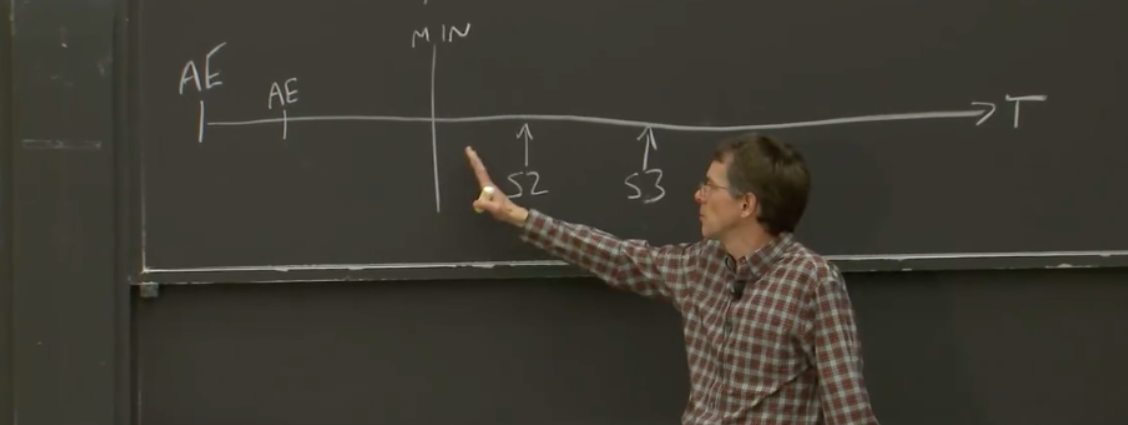 MIN
AE
AE
T
S2
S3